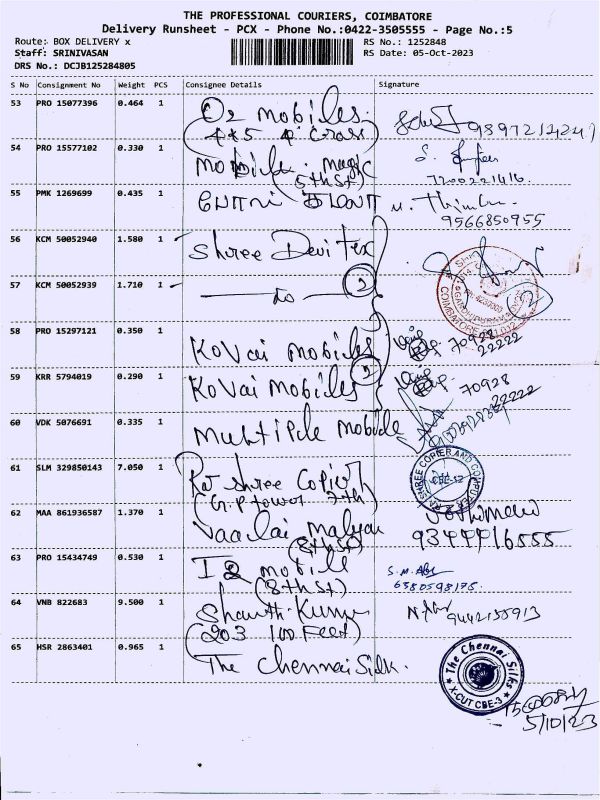 THE PROFESSIONAL COURIERS, COIMBATORE
Delivery Runsheet - PCX - Phone No.:0422-3505555 - Page No.:5
Route: BOX DELIVERY x
RS No.: 1252848
Staff: SRINIVASAN
RS Date: 05-Oct-2023
DRS No.: DCJB125284805
S No Consignment No Weight PCS Consignee Details Signature
53 PRO 15077396 0.464 1 mobiles
(4th 5 4th Cross)
54 PRO 15577102 0.330 1 mobile magic
7200221416
(5th St)
55 PMK 1269699 0.435 1
9566850955
56 KCM 50052940 1.580 1 Shree Devi Tex
57 KCM 50052939 1.710 1 — do — 2
COIMBATORE
58 PRO 15297121 0.350 1 Kovai mobiles 70928
22222
59 KRR 5794019 0.290 1 Kovai Mobiles 2 70928
22222
60 VDK 5076691 0.335 1 Multiple mobile
61 SLM 329850143 7.050 1 Shree Copier
SHREE COPIER AND COMPUTER
CBE-12
(G.P tower 7th)
62 MAA 861936587 1.370 1 Vaalai
(8th St)
63 PRO 15434749 0.530 1 mobile
6380598175
(8th St)
64 VNB 822683 9.500 1 Shanthi Kumar
9442155913
(203 100 Feet)
65 HSR 2863401 0.965 1 The Chennai Silk.
The Chennai Silks
X-CUT CBE-3
5/10/23